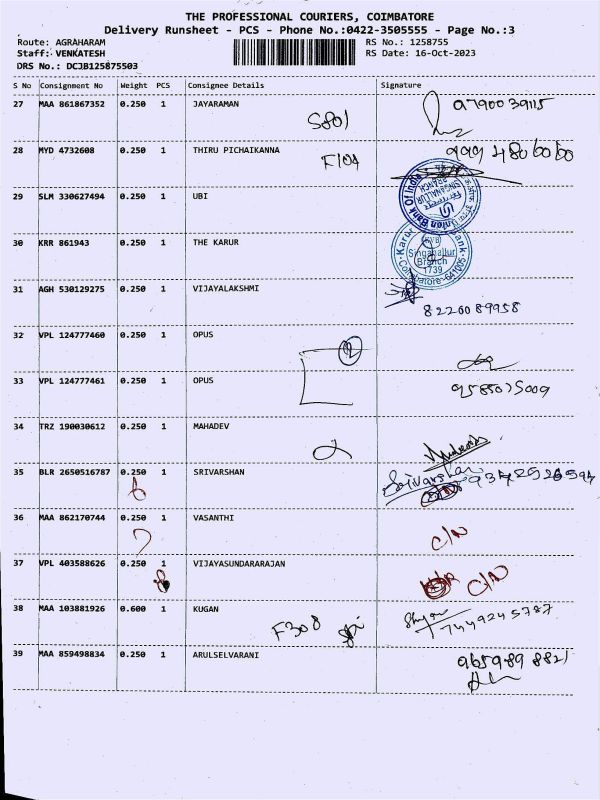 THE PROFESSIONAL COURIERS, COIMBATORE
Delivery Runsheet - PCS - Phone No.:0422-3505555 - Page No.:3
Route: AGRAHARAM
RS No.: 1258755
Staff: VENKATESH
RS Date: 16-Oct-2023
DRS No.: DCJB125875503
S No Consignment No Weight PCS Consignee Details Signature
27 MAA 861867352 0.250 1 JAYARAMAN 9790039115
S801
28 MYD 4732608 0.250 1 THIRU PICHAIKANNA
F104
29 SLM 330627494 0.250 1 UBI
Union Bank Of India
SINGANALLUR
BRANCH
30 KRR 861943 0.250 1 THE KARUR
Karur
Bank
Singanallur
Branch
1739
Coimbatore-641005
31 AGH 530129275 0.250 1 VIJAYALAKSHMI
8220089958
32 VPL 124777460 0.250 1 OPUS
2
33 VPL 124777461 0.250 1 OPUS
9585075009
34 TRZ 190030612 0.250 1 MAHADEV
35 BLR 2650516787 0.250 1 SRIVARSHAN
Srivarshan
36 MAA 862170744 0.250 1 VASANTHI
C/N
37 VPL 403588626 0.250 1 VIJAYASUNDARARAJAN
C/N
38 MAA 103881926 0.600 1 KUGAN
F308
7449245787
39 MAA 859498834 0.250 1 ARULSELVARANI
9659898821